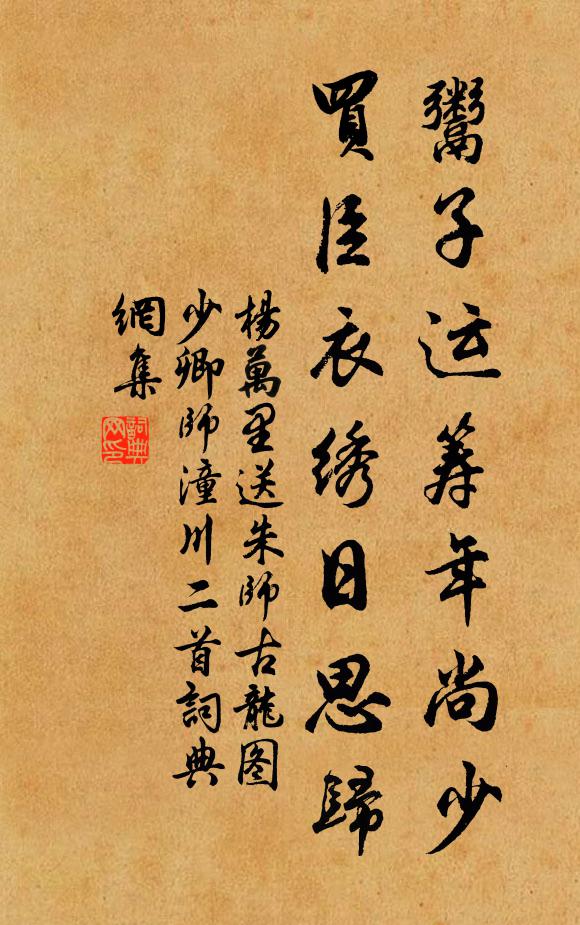 鬻子运筹年尚少
買臣衣绣日思歸
楊萬里送朱師古龍图
少卿師潼川二首詞典
網集
詞典網印